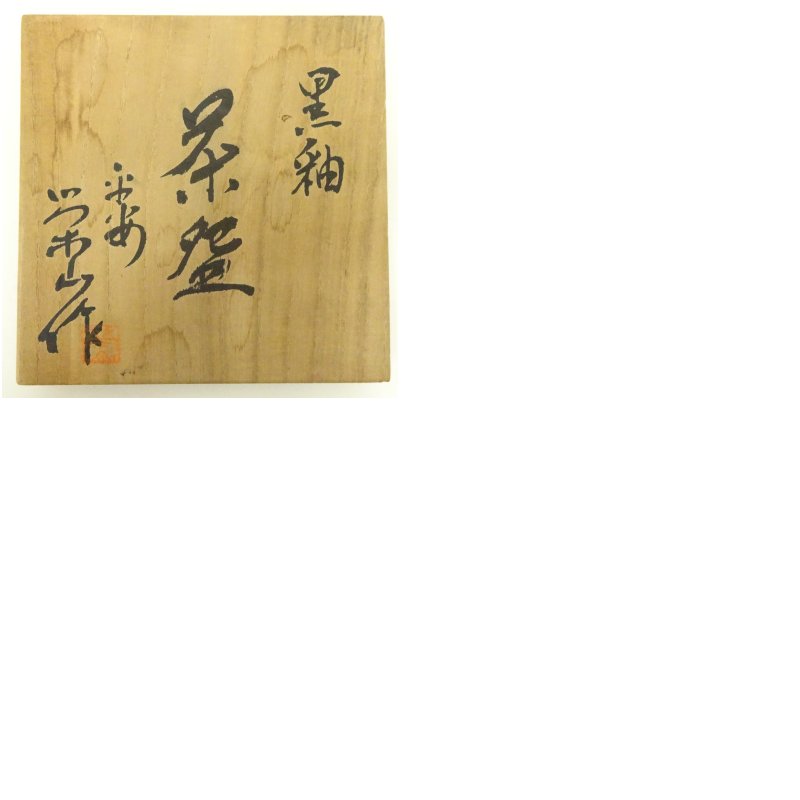 黒釉
茶盌
平安
栄山作